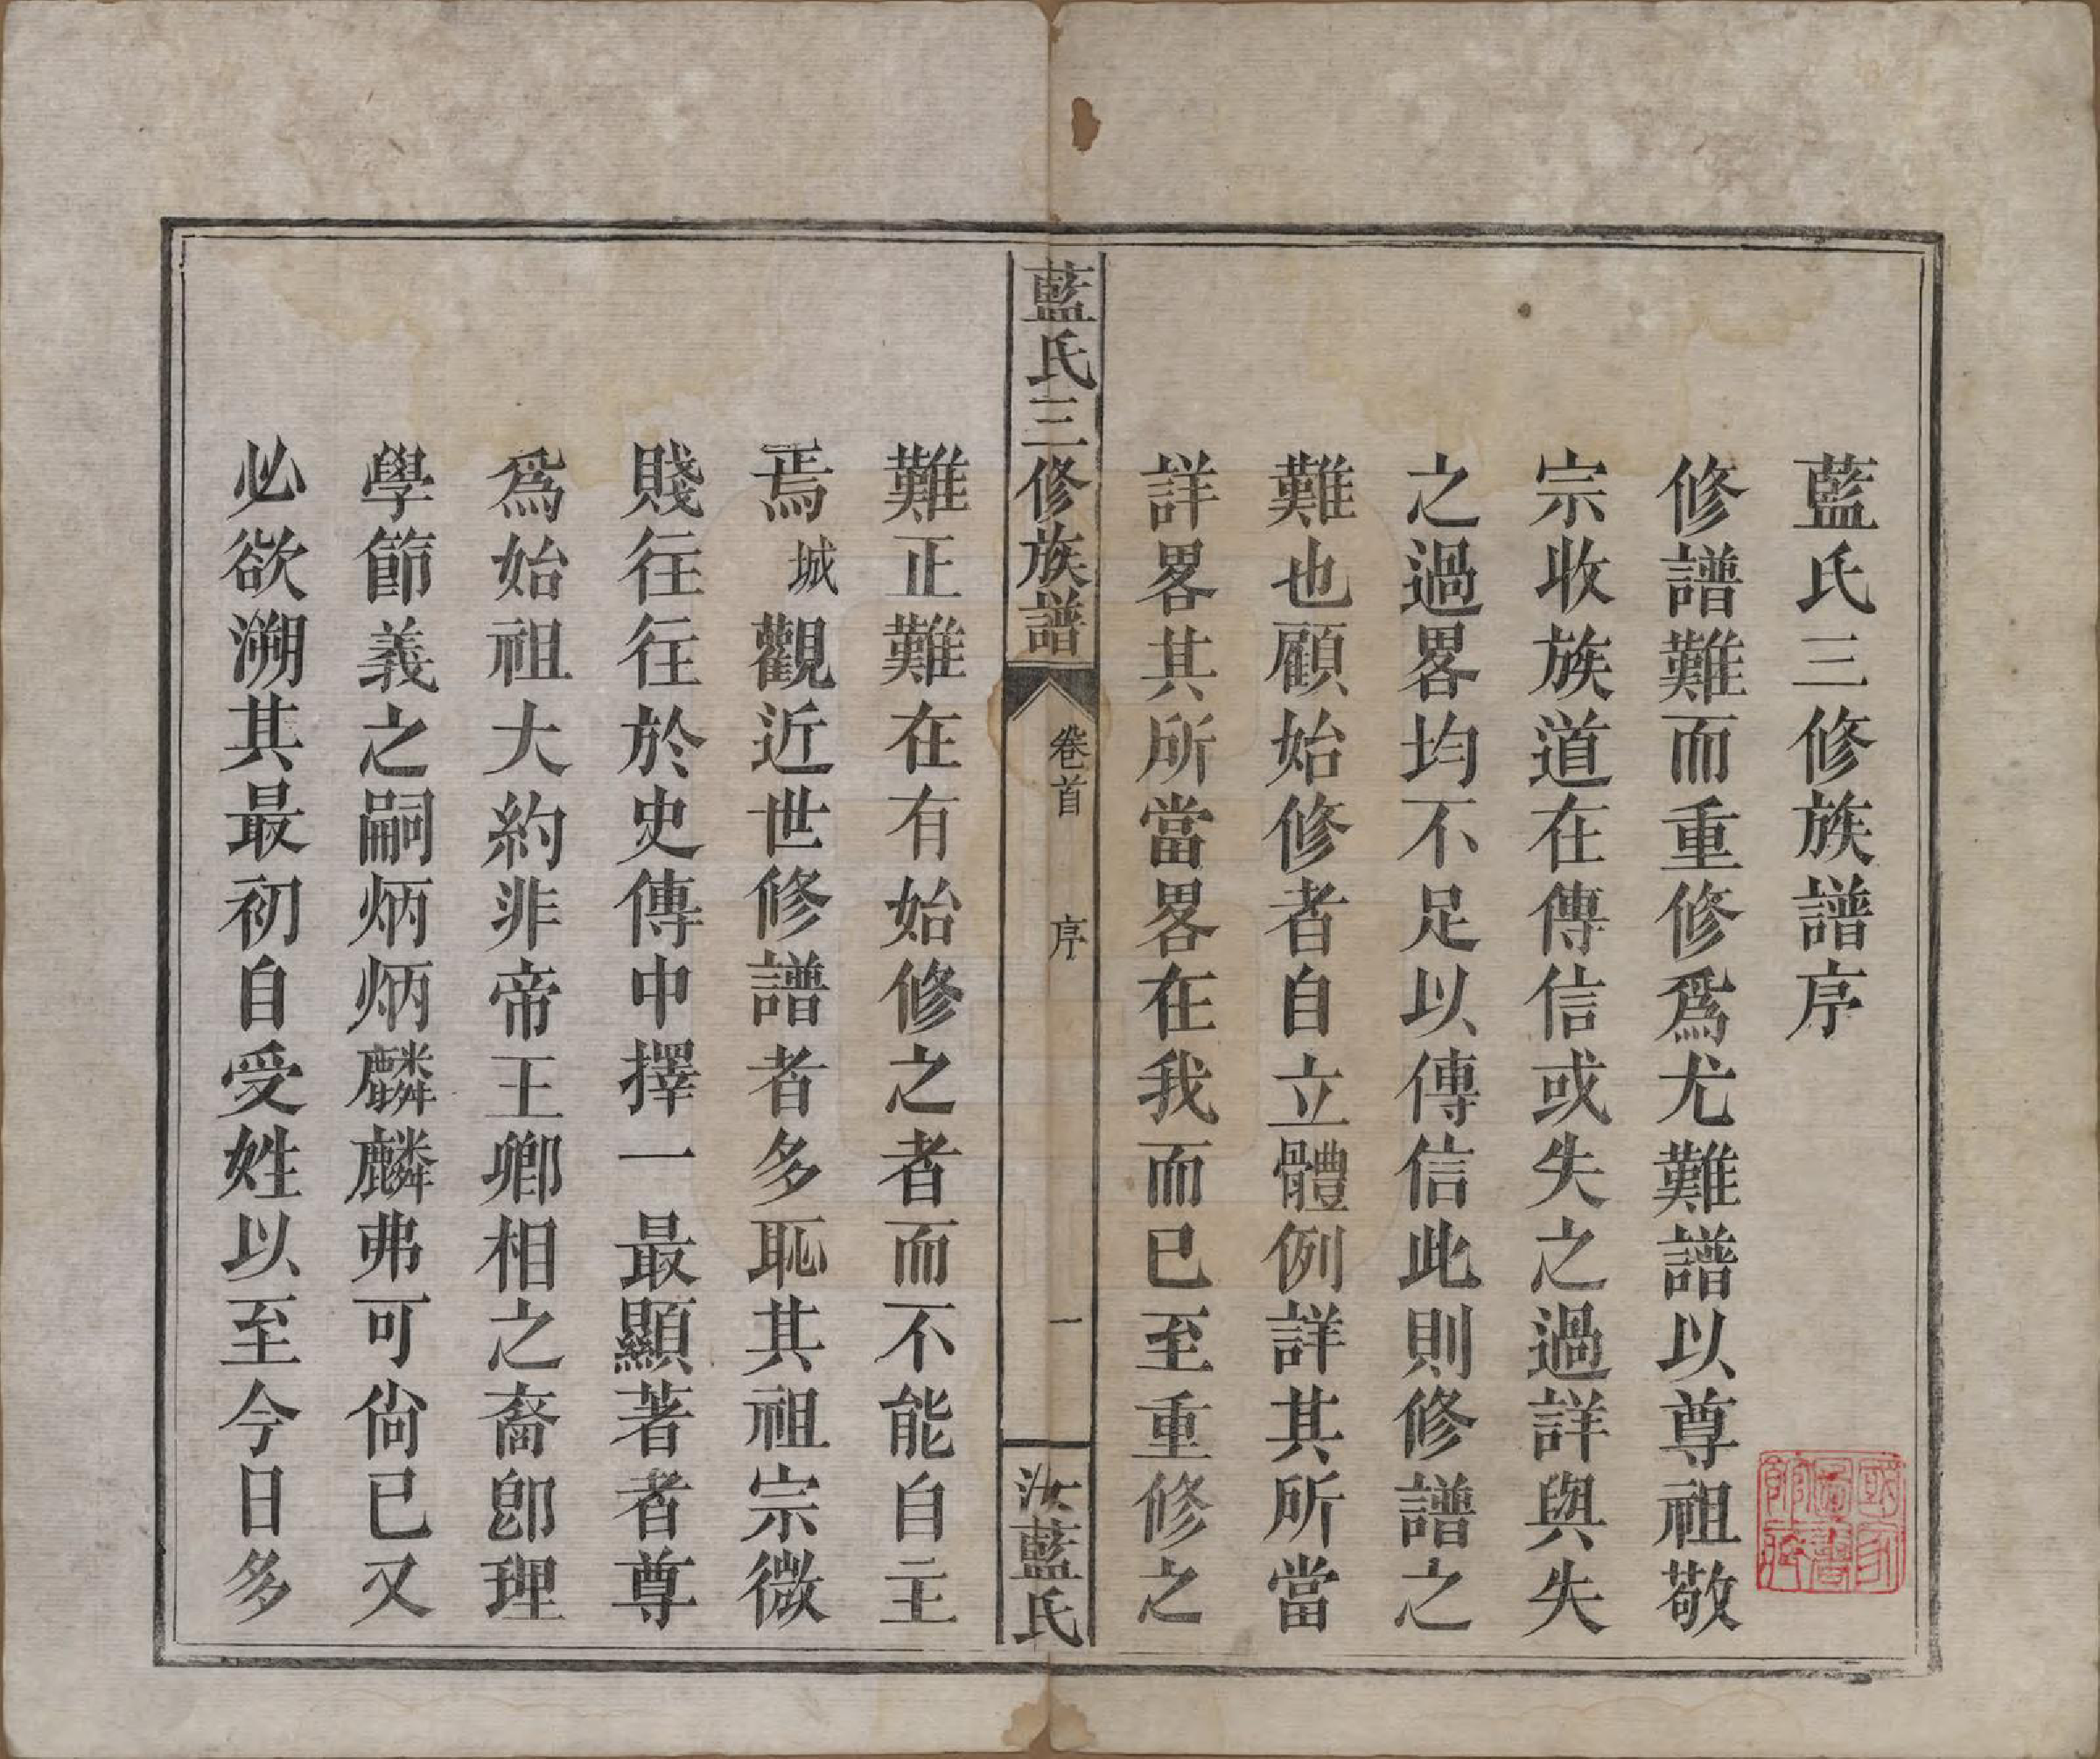 藍氏三修族譜序
修譜難而重修爲尤難譜以尊祖敬
宗收族道在傳信或失之過詳與失
之過畧均不足以傳信此則修譜之
難也顧始修者自立體例詳其所當
詳畧其所當畧在我而已至重修之
藍氏三修族譜
卷首 序 一
汝藍氏
難正難在有始修之者而不能自主
焉城觀近世修譜者多恥其祖宗微
賤往往於史傳中擇一最顯著者尊
爲始祖大約非帝王卿相之裔卽理
學節義之嗣炳炳麟麟弗可尙已又
必欲溯其最初自受姓以至今日多
國家圖書館藏